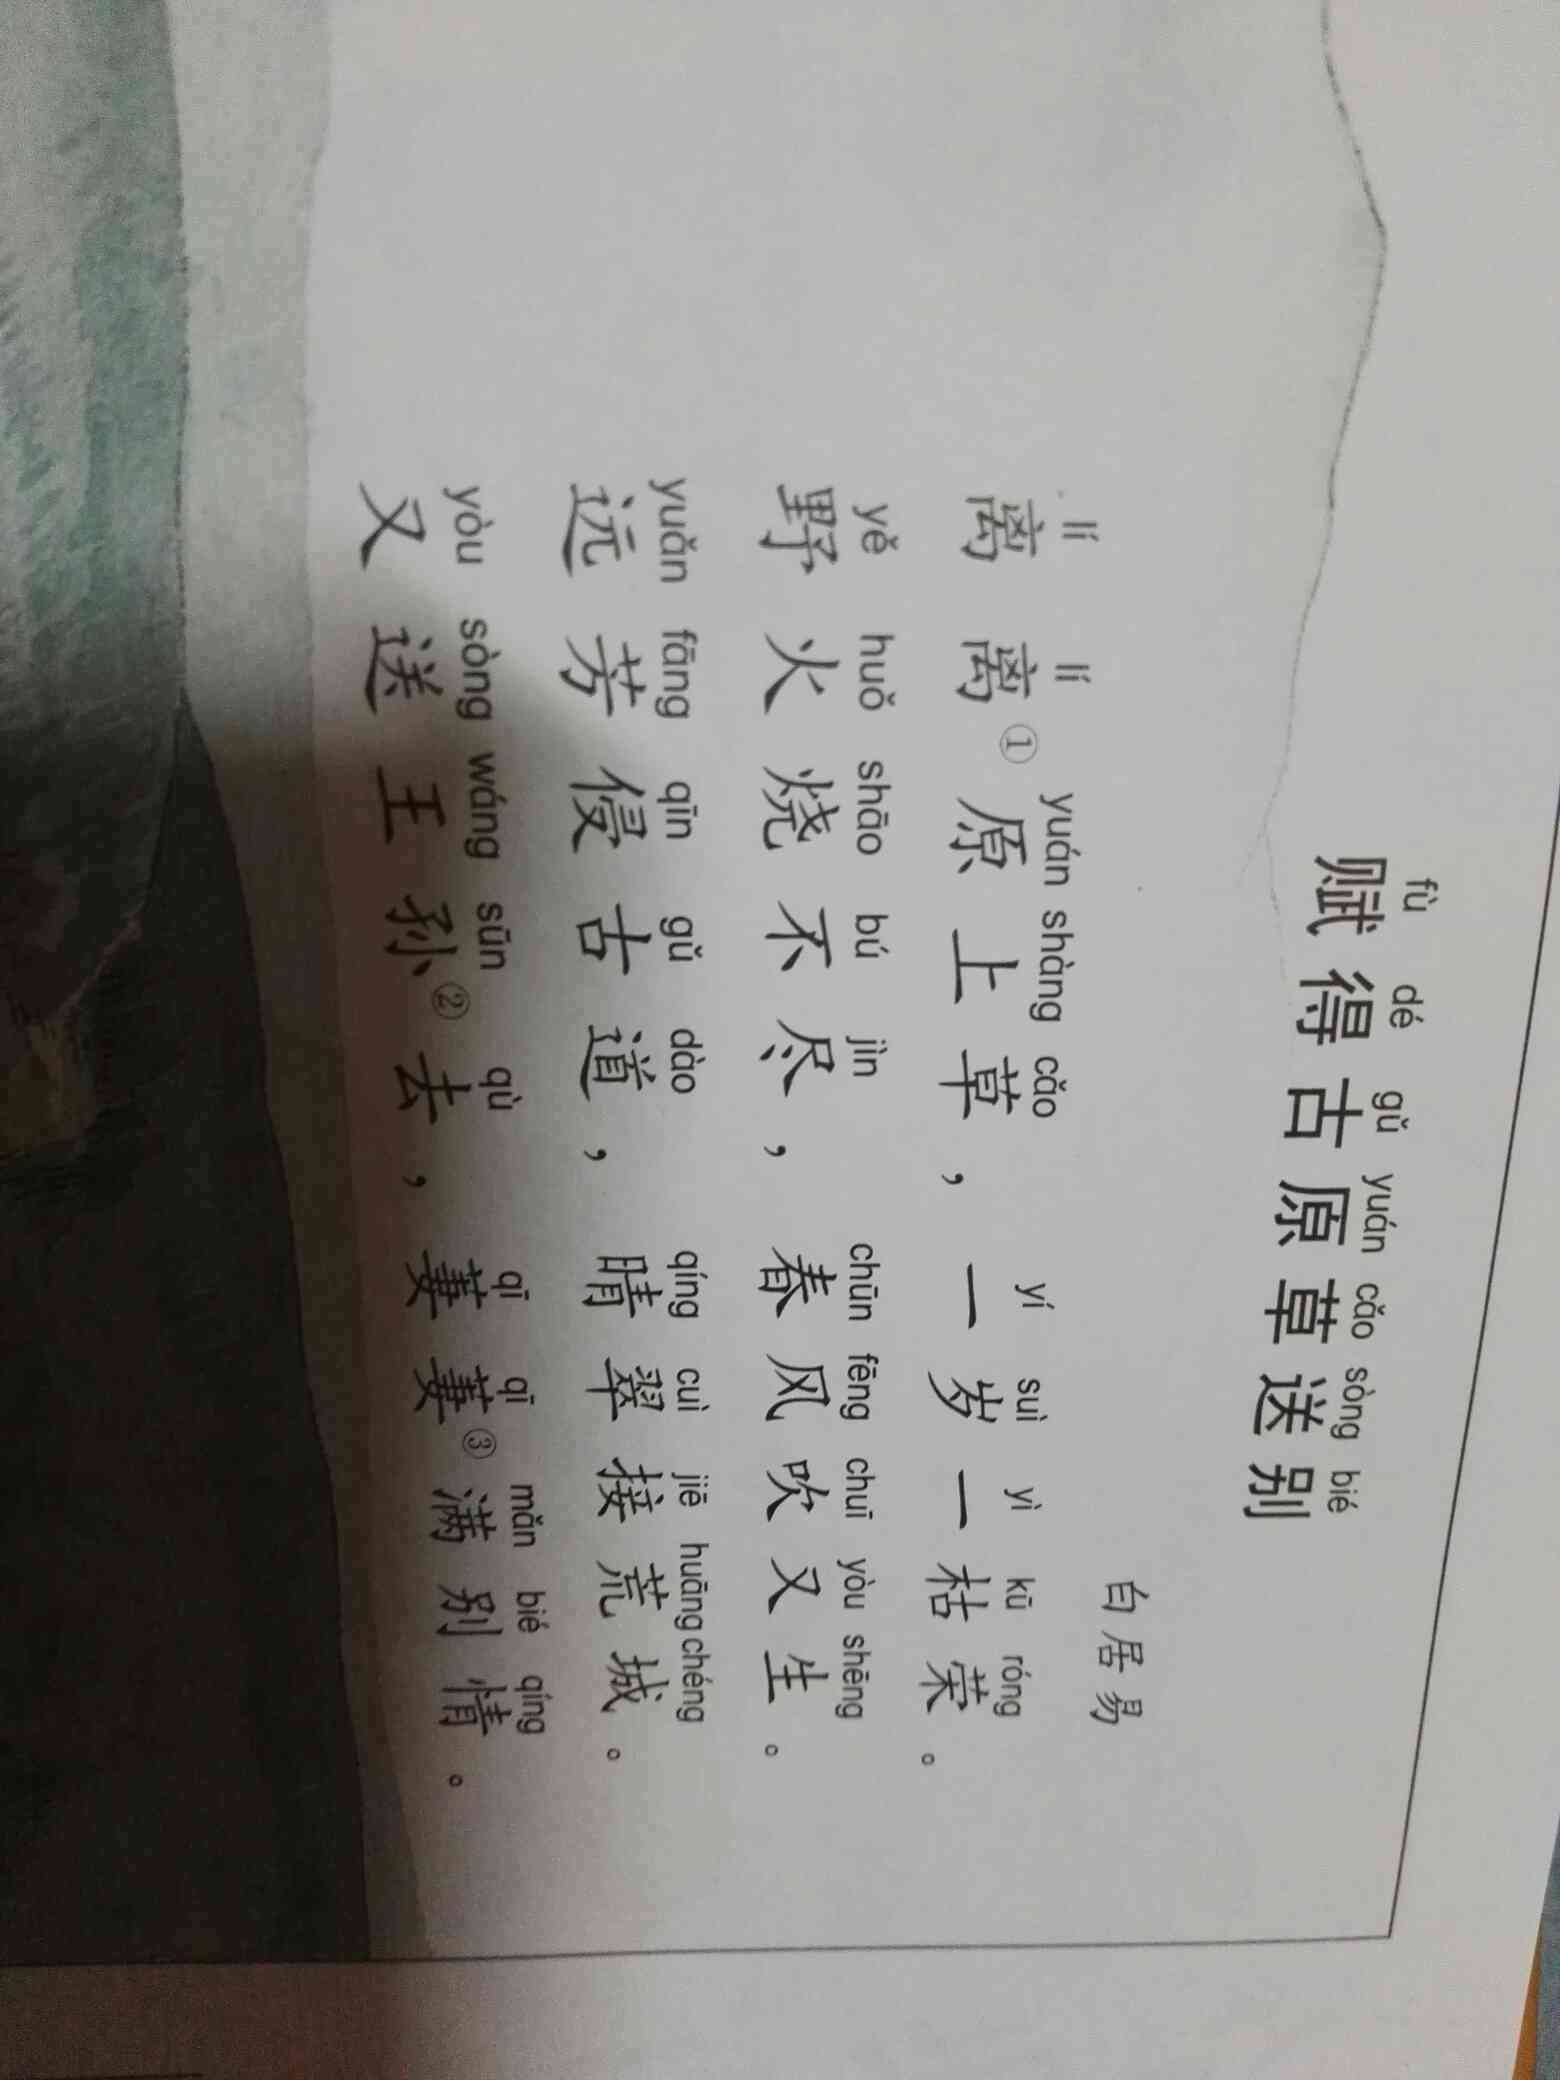 fù dé gǔ yuán cǎo sòng bié
赋得古原草送别
白居易
lí lí yuán shàng cǎo yí suì yì kū róng
离离①原上草，一岁一枯荣。
yě huǒ shāo bú jìn chūn fēng chuī yòu shēng
野火烧不尽，春风吹又生。
yuǎn fāng qīn gǔ dào qíng cuì jiē huāng chéng
远芳侵古道，晴翠接荒城。
yòu sòng wáng sūn qù qī qī mǎn bié qíng
又送王孙②去，萋萋③满别情。